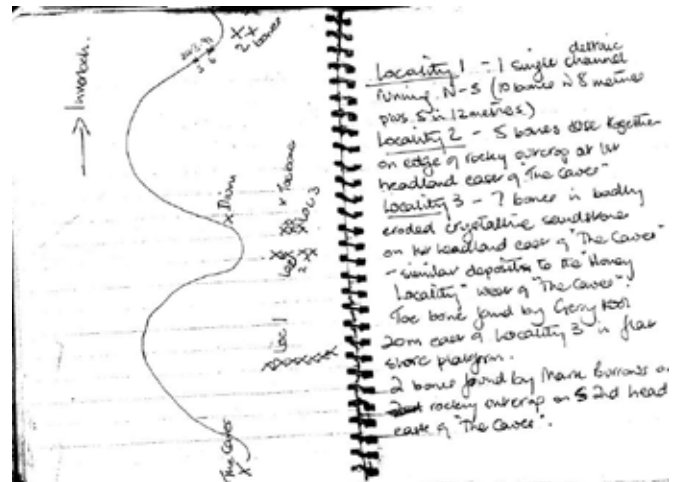 Inverloch.
X X
2 bones
x Toe bone
Loc 3
Loc 2
Loc 1
The Caves
X
Locality 1 - 1 single channel
running N-S (10 bones in 8 metres
plus 5 in 12 metres.)
Locality 2 - 5 bones close together
on edge of rocky outcrop at 1st
headland east of "The Caves"
Locality 3 - 7 bones in badly
eroded crystalline sandstone
on 1st headland east of "The Caves"
- similar deposits to the "Honey
Locality" west of "The Caves".
Toe bone found by Gerry Kool
20m east of Locality 3 in flat
shore platform.
2 bones found by Mark Burrows on
rocky outcrop on S 2nd head
east of "The Caves".